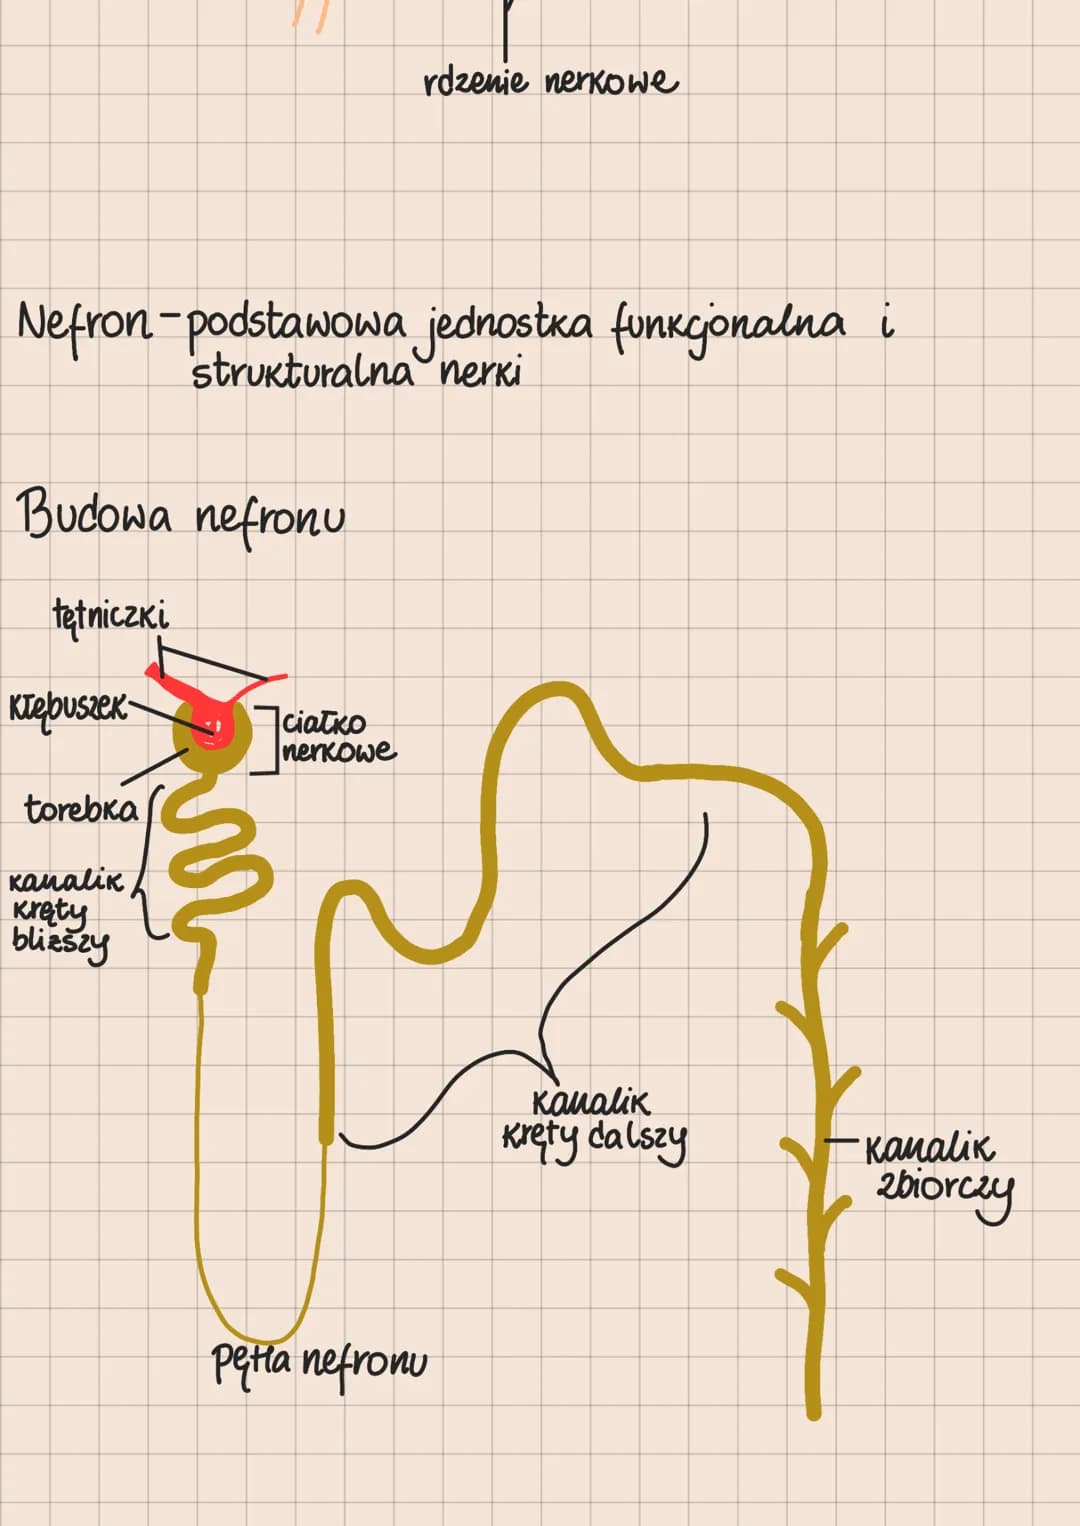 rdzenie nerkowe
Nefron - podstawowa jednostka funkcjonalna i
strukturalna nerki
Budowa nefronu
tętniczki
kłębuszek
ciałko
nerkowe
torebka
kanalik
kręty
bliższy
kanalik
kręty dalszy
kanalik
zbiorczy
pętla nefronu